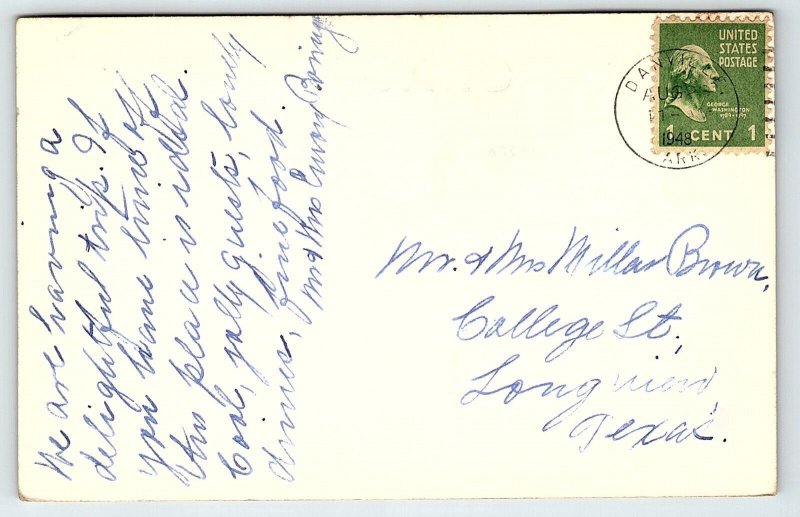 We are having a
delightful trip. If
you have time off
this place is ideal.
Cool, jolly guests, lovely
drives, fine food.
Mr & Mrs Emory
UNITED
STATES
POSTAGE
GEORGE
WASHINGTON
1789-1797
1 CENT 1
DANVILLE
AUG
1948
ARK.
Mr. & Mrs Millar Brown,
College St,
Longview,
Texas.